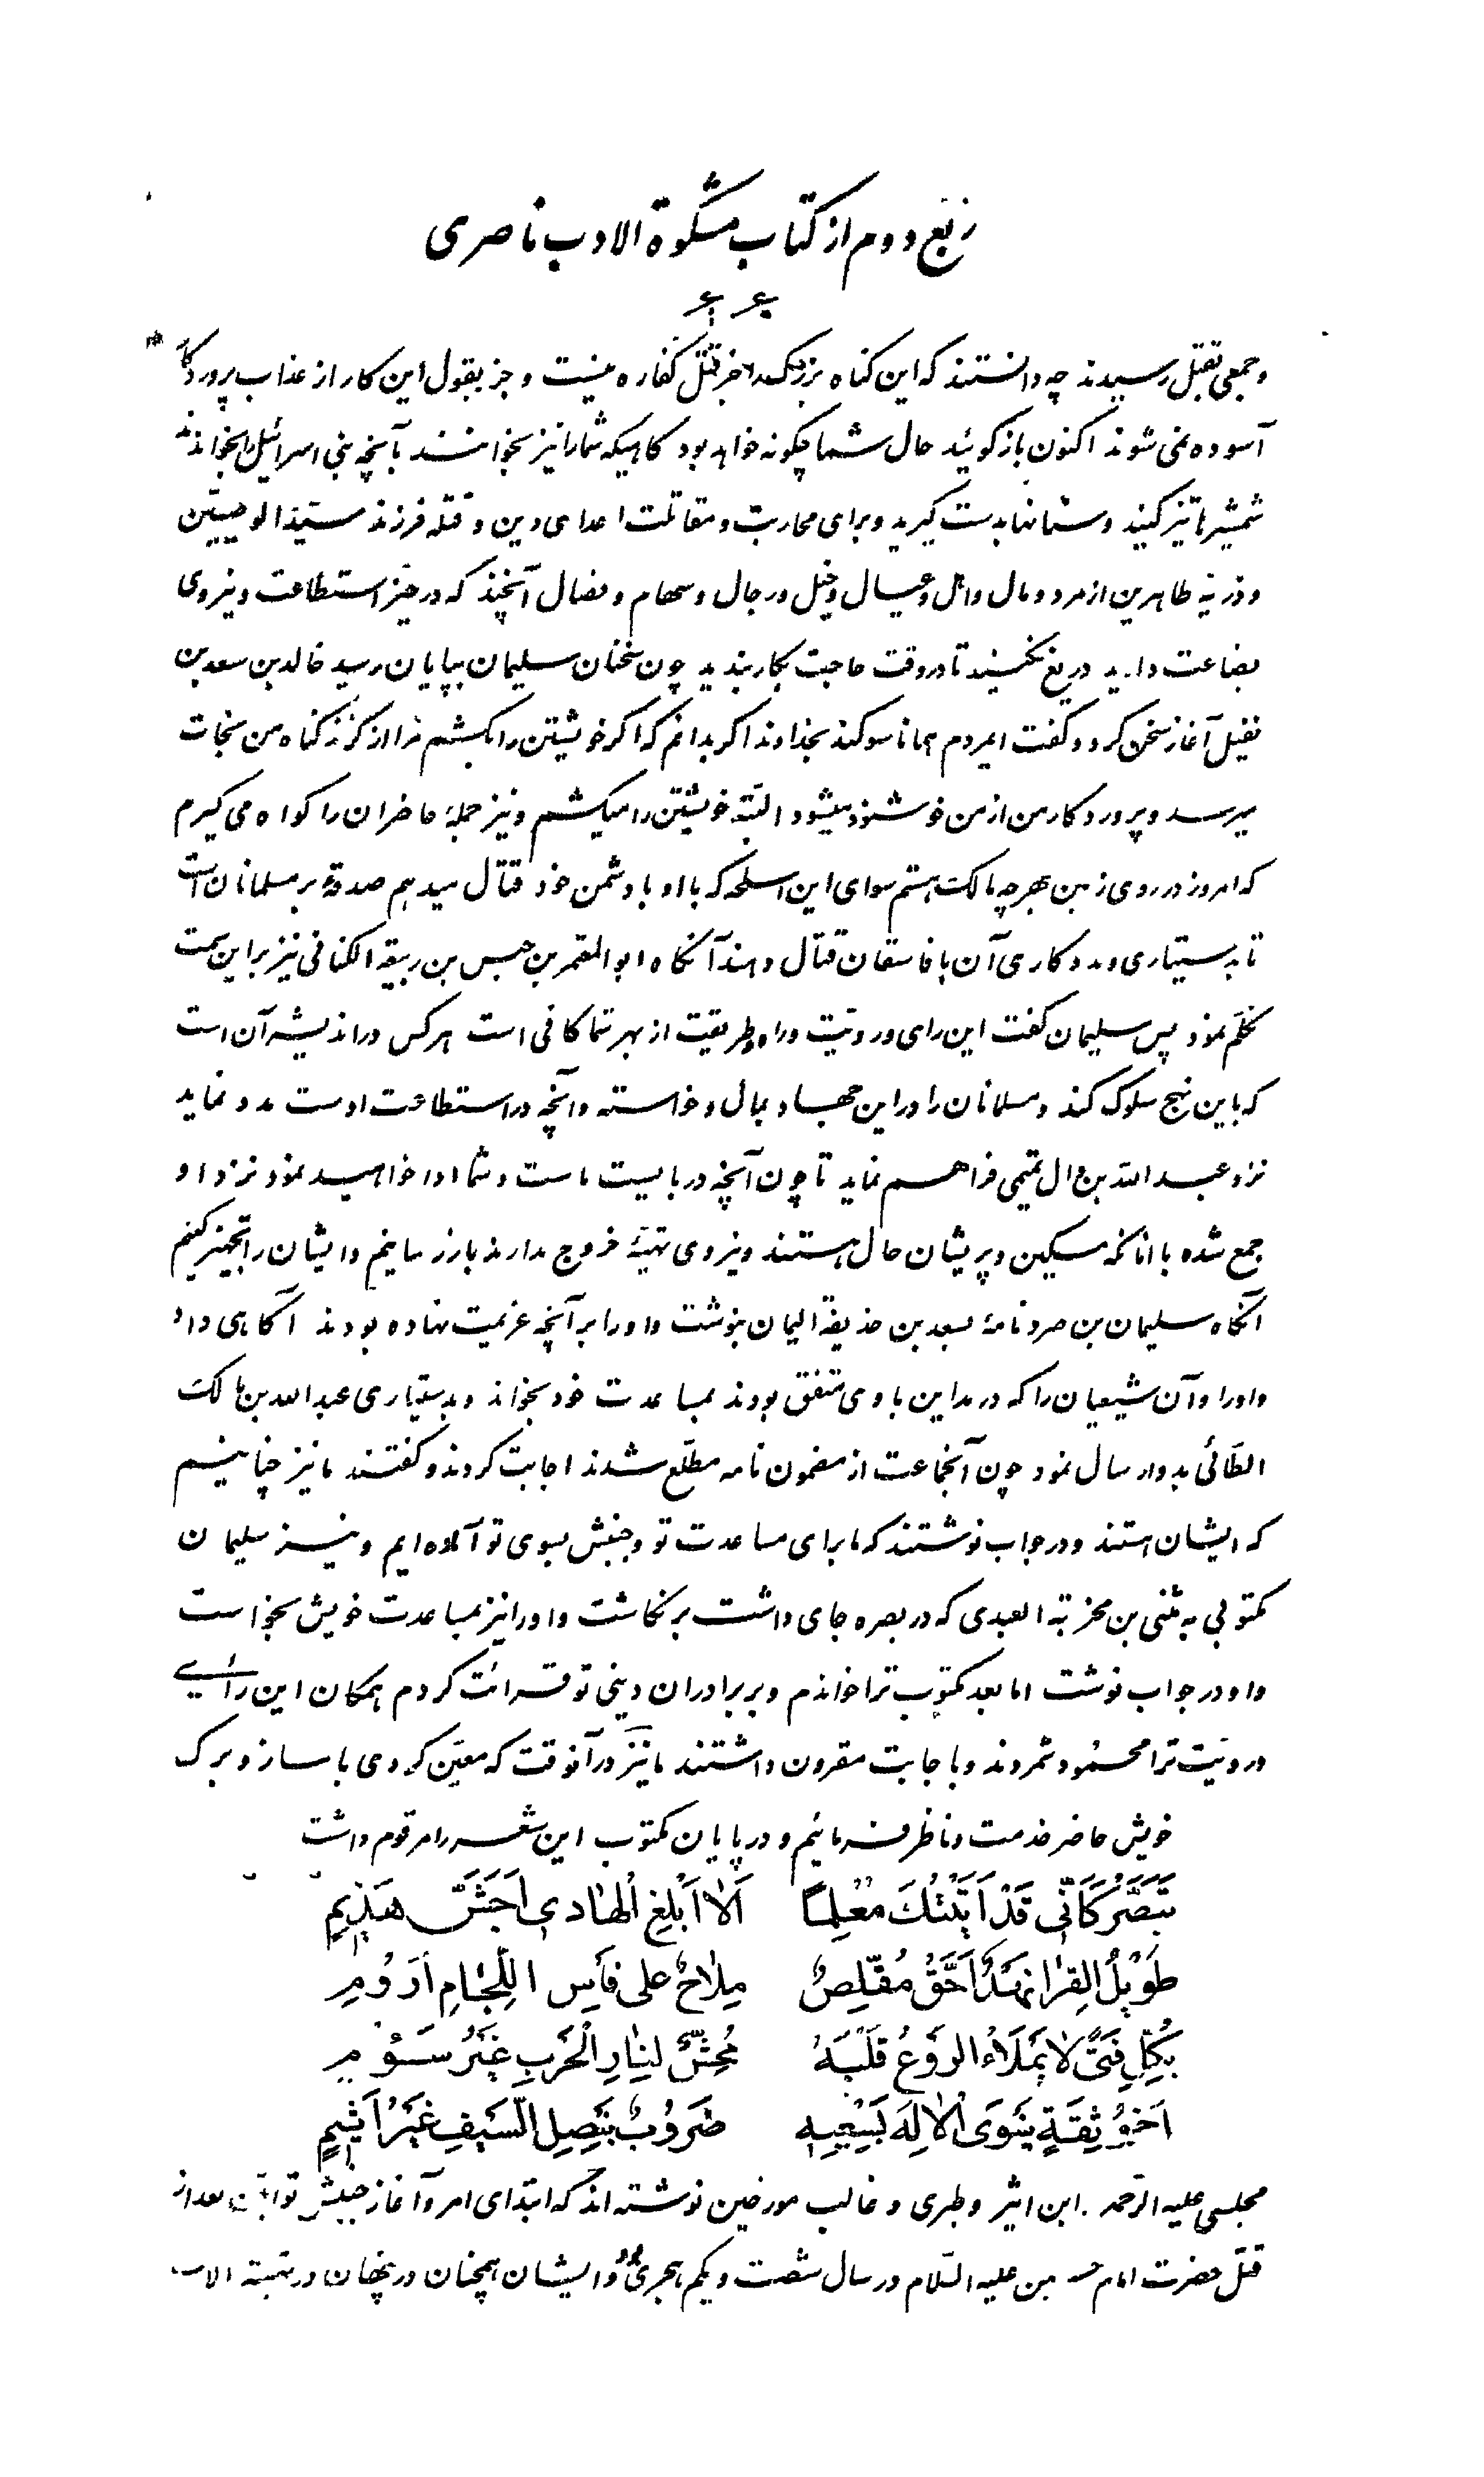 ربع دوم از کتاب مشکوة الادب ناصری
وجمعی بقتل رسیدند چه دانستند که این کناه بزرک را جز قتل کفاره نیست و جز بقبول این کار از عذاب پروردکار
آسوده نمی شوند اکنون باز کوئید حال شما چکونه خواهد بود کاهیکه شما را نیز بخوانند بآنچه بنی اسرائیل را بخواندند
شمشیرها تیز کنید و سنانها بدست کیرید و برای محاربت و مقاتلت اعدای دین و قتله فرزند سید الوصیین
و ذریه طاهرین از مرد و مال و اهل و عیال و خیل و رجال و سهام و نصال آنچند که در حیز استطاعت و نیروی
بضاعت دارید دریغ نکنید تا در وقت حاجت بکار بندید چون سخنان سلیمان بپایان رسید خالد بن سعد بن
نفیل آغاز سخن کرد و کفت ایمردم همانا سوکند بخداوند اکر بدانم که اکر خویشتن را بکشم مرا از کزند کناه من نجات
میرسد و پروردکار من از من خوشنود میشود البته خویشتن را میکشم و نیز جملهٔ حاضران را کواه می کیرم
که امروز در روی زمین بهرچه مالک هستم سوای این اسلحه که با او با دشمن خود قتال میدهم صدقهٔ بر مسلمانان است
تا بدستیاری و مددکاری آن با فاسقان قتال دهند آنکاه ابو المعتمر بن حبس بن ربیعة الکنانی نیز براین سمت
تکلم نمود پس سلیمان کفت این رای و رویت و راه و طریقت از بهر شما کافی است هرکس در اندیشه آن است
که باین نهج سلوک کند و مسلمانان را در این جهاد بمال و خواسته و آنچه در استطاعت اوست مدد نماید
نزد عبد الله بن وال تیمی فراهم نماید تا چون آنچه دربایست ماست و شما ادا خواهید نمود نزد او
جمع شده با انانکه مسکین و پریشان حال هستند و نیروی تهیهٔ خروج ندارند بازرسانیم و ایشان را تجهیز کنیم
آنکاه سلیمان بن صرد نامهٔ بسعد بن حذیفة الیمان بنوشت و او را برآنچه عزیمت نهاده بودند آکاهی داد
و او را و آن شیعیان را که در مداین با وی متفق بودند بمساعدت خود بخواند و بدستیاری عبد الله بن مالک
الطائی بدو ارسال نمود چون آنجماعت از مضمون نامه مطلع شدند اجابت کردند و کفتند ما نیز چنانیم
که ایشان هستند و در جواب نوشتند که ما برای مساعدت تو و جنبش بسوی تو آماده ایم و نیز سلیمان
مکتوبی به مثنی بن مخربة العبدی که در بصره جای داشت برنکاشت و او را نیز بمساعدت خویش بخواست
و او در جواب نوشت اما بعد مکتوب ترا خواندم و بر برادران دینی تو قرائت کردم همکان این رای
و رویت ترا محمود شمردند و با جابت مقرون داشتند ما نیز در آنوقت که معین کردی با ساز و برک
خویش حاضر خدمت و ناظر فرمائیم و در پایان مکتوب این شعر را مرقوم داشت
تَبَصَّرْ کَاَنّی قَدْ اَتَیْتُکَ مُعْلِمًا اَلا اَبْلِغِ الْهادی اَجَشَّ هَذیمِ
طَویلُ الْقِرا نَهْدٌ اَحَقُّ مُقَلِّصٌ مِلاحٌ علی فَاْسِ اللِّجامِ اَزومِ
بِکُلِّ فَتیً لا یَمْلَاُ الرَّوْعُ قَلْبَهُ مُحِشٌّ لِنارِ الْحَرْبِ غَیْرُ سَؤُمِ
اَخو ثِقَةٍ یَنْوَی الْاِلهَ بِسَعْیِهِ ضَروُبٌ بِنَصْلِ السَّیْفِ غَیْرُ اَثیمٍ
مجلسی علیه الرحمه . ابن اثیر و طبری و غالب مورخین نوشته اند که ابتدای امر و آغاز جنبش توابین بعد از
قتل حضرت امام حسین علیه السلام در سال شصت و یکم هجری بود و ایشان همچنان در پنهان در تهیهٔ الات